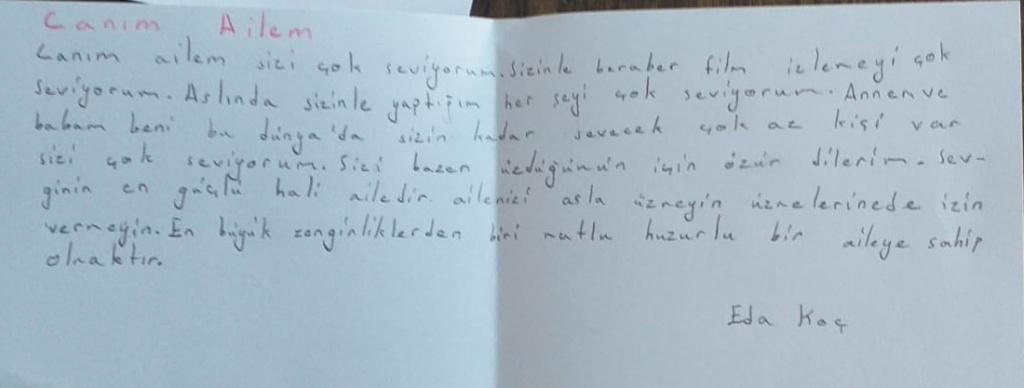 Canım Ailem
Canım ailem sizi çok seviyorum. Sizinle beraber film izlemeyi çok
seviyorum. Aslında sizinle yaptığım her şeyi çok seviyorum. Annem ve
babam beni bu dünya'da sizin kadar sevecek çok az kişi var
sizi çok seviyorum. Sizi bazen üzdüğümün için özür dilerim. Sev-
ginin en güçlü hali ailedir. ailenizi asla üzmeyin üzmelerinede izin
vermeyin. En büyük zenginliklerden biri mutlu huzurlu bir aileye sahip
olmaktır.
Eda Koç